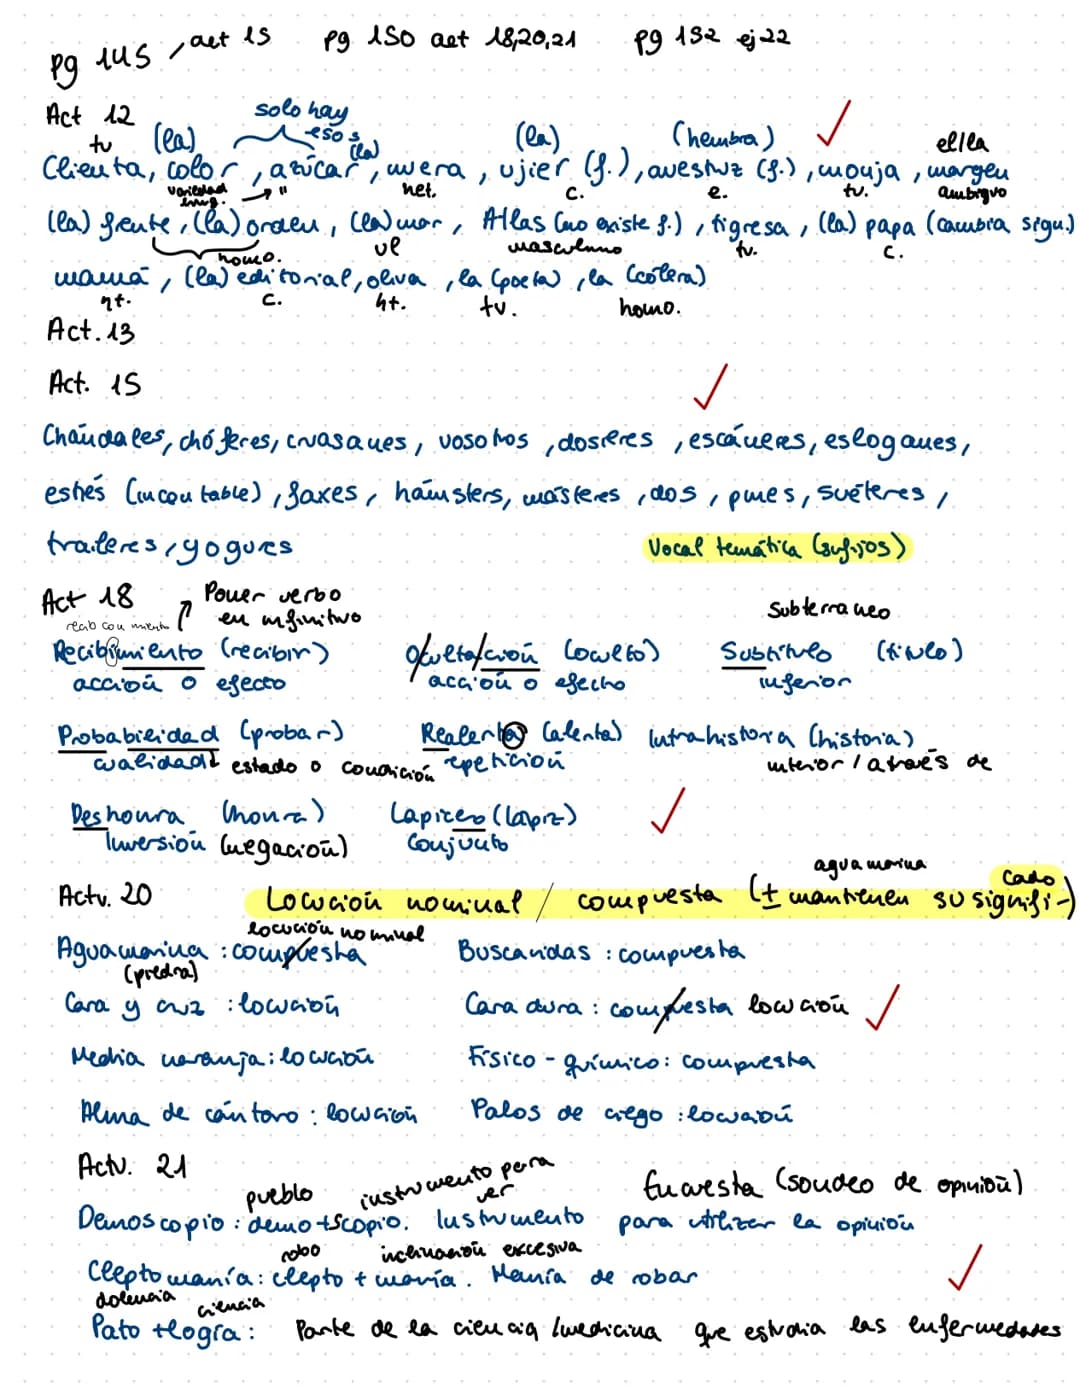 pg 145, act 15 pg 150 act 18,20,21 pg 152 ej 22
Act 12 solo hay esos
tv (la) (la) (la) (hembra) el/la
Clienta, color, azúcar, nuera, ujier (f.), avestruz (f.), monja, margen
variedad " het. c. e. tv. ambiguo
(la) frente, (la) orden, (la) mar, Atlas (no existe f.), tigresa, (la) papa (cambia sign.)
homo. masculino tv. c.
mamá, (la) editorial, oliva, la (poeta), la (cólera)
ht. c. ht. tv. homo.
Act. 13
Act. 15
Chándales, chóferes, cruasanes, vosotros, dosieres, escáneres, eslóganes,
estrés (incontable), faxes, hámsters, másteres, dos, pines, suéteres,
traileres, yogures Vocal temática (sufijos)
Act 18 Poner verbo en infinitivo Subterraneo
Recibimiento (recibir) Ocultación (oculto) Subtítulo (título)
acción o efecto acción o efecto inferior
Probabilidad (probar) Realenta (alenta) Intrahistoria (historia)
cualidad estado o condición repetición interior / através de
Deshonra (honra) Lapicero (lápiz)
Inversión (negación) Conjunto
aguamarina
Actv. 20 Locución nominal / compuesta (± mantienen su significado)
locución nominal
Aguamarina : compuesta Buscavidas : compuesta
(piedra)
Cara y cruz : locución Cara dura : compuesta locución
Media naranja : locución Físico - químico : compuesta
Alma de cántaro : locución Palos de ciego : locución
Actv. 21
pueblo instrumento para ver Encuesta (sondeo de opinión)
Demoscopio : demo + scopio. Instrumento para utilizar la opinión
robo inclinación excesiva
Cleptomanía : clepto + manía. Manía de robar
dolencia ciencia
Pato + logía : Parte de la ciencia / medicina que estudia las enfermedades